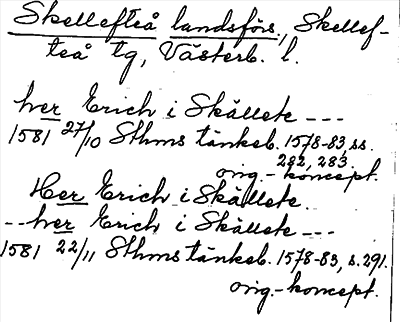 Skellefteå landsförs., Skellef-
teå tg, Västerb. l.
her Erich i Skällete ---
1581 27/10 Sthms tänkeb. 1578-83, ss.
282, 283.
orig.-koncept.
Her Erich i Skällete
--her Erich i Skällete ---
1581 22/11 Sthms tänkeb. 1578-83, s. 291.
orig.-koncept.